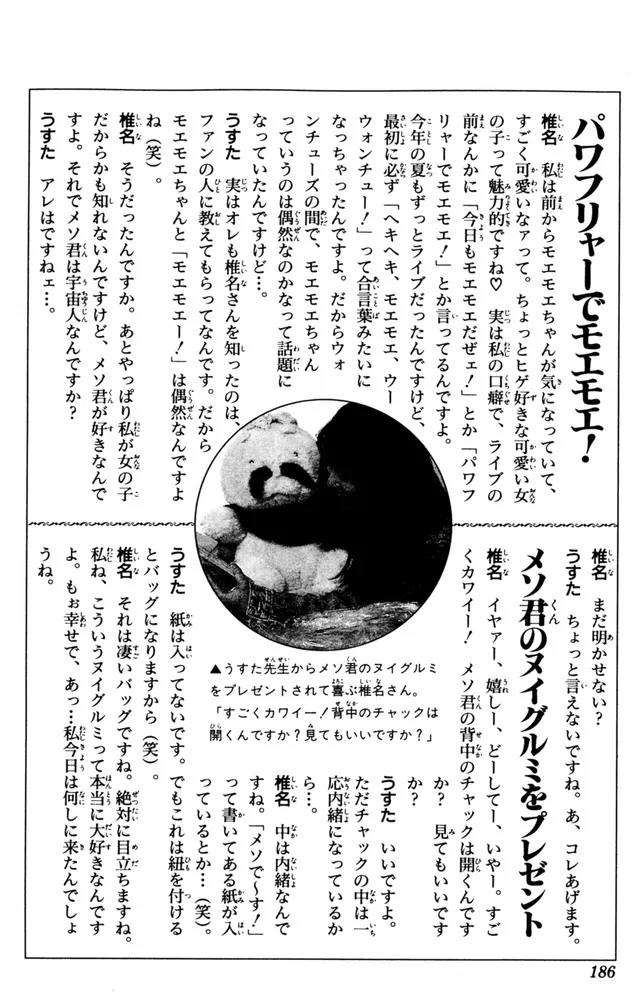 パワフリャーでモエモエ!
椎名 私は前からモエモエちゃんが気になっていて、
すごく可愛いなァって。ちょっとヒゲ好きな可愛い女
の子って魅力的ですね♡ 実は私の口癖で、ライブの
前なんかに「今日もモエモエだぜェ!」とか「パワフ
リャーでモエモエ!」とか言ってるんですよ。
今年の夏もずっとライブだったんですけど、
最初に必ず「ヘキヘキ、モエモエ、ウー
ウォンチュー!」って合言葉みたいに
なっちゃったんですよ。だからウォ
ンチューズの間で、モエモエちゃん
っていうのは偶然なのかなって話題に
なっていたんですけど…。
うすた 実はオレも椎名さんを知ったのは、
ファンの人に教えてもらってなんです。だから
モエモエちゃんと「モエモエー!」は偶然なんですよ
ね(笑)。
椎名 そうだったんですか。あとやっぱり私が女の子
だからかも知れないんですけど、メソ君が好きなんで
すよ。それでメソ君は宇宙人なんですか?
うすた アレはですねェ…。
椎名 まだ明かせない?
うすた ちょっと言えないですね。あ、コレあげます。
メソ君のヌイグルミをプレゼント
椎名 イヤァー、嬉しー、どーしてー、いやー。すご
くカワイー! メソ君の背中のチャックは開くんです
か? 見てもいいです
か?
うすた いいですよ。
ただチャックの中は一
応内緒になっているか
ら…。
椎名 中は内緒なんで
すね。「メソで〜す!」
って書いてある紙が入
っているとか…(笑)。
うすた 紙は入ってないです。でもこれは紐を付ける
とバッグになりますから(笑)。
椎名 それは凄いバッグですね。絶対に目立ちますね。
私ね、こういうヌイグルミって本当に大好きなんです
よ。もぉ幸せで、あっ…私今日は何しに来たんでしょ
うね。
▲うすた先生からメソ君のヌイグルミ
をプレゼントされて喜ぶ椎名さん。
「すごくカワイー!背中のチャックは
開くんですか?見てもいいですか?」
186